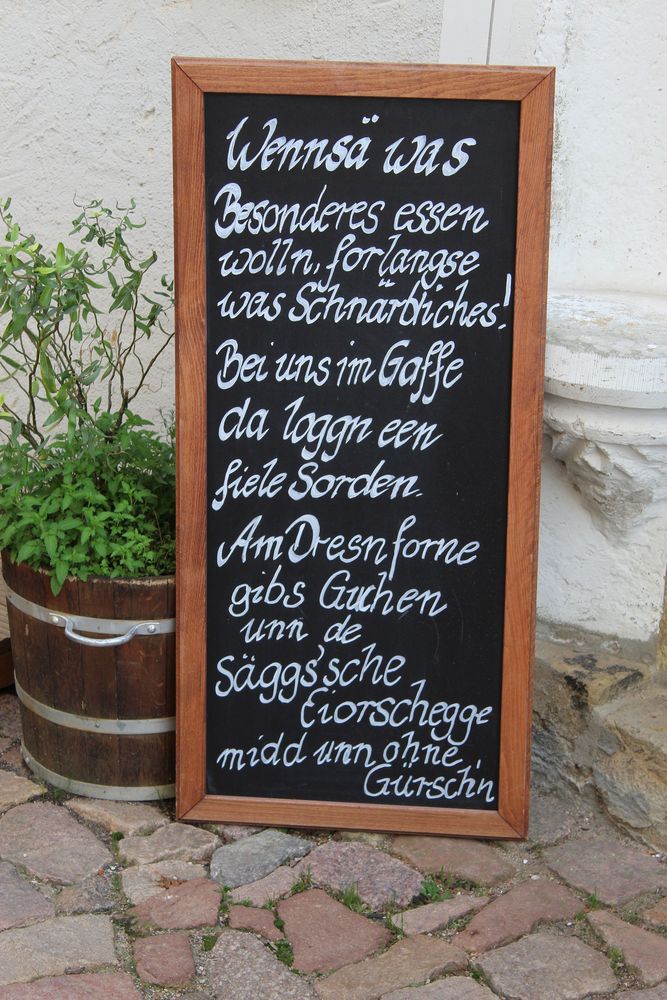 Wennsä was
Besonderes essen
wolln, forlangse
was Schnärbliches!
Bei uns im Gaffe
da loggn een
fiele Sorden.
Am Dresn forne
gibs Guchen
unn de
Säggs'sche
Eiorschegge
midd unn ohne
Gürsch'n